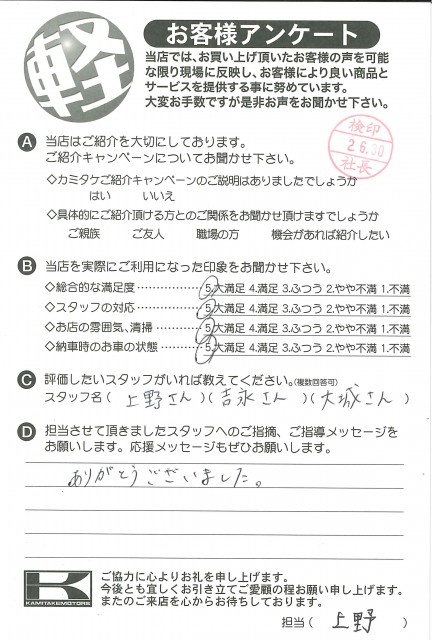 軽
お客様アンケート
当店では、お買い上げ頂いたお客様の声を可能
な限り現場に反映し、お客様により良い商品と
サービスを提供する事に努めています。
大変お手数ですが是非お声をお聞かせ下さい。
検印
2.6.30
社長
A 当店はご紹介を大切にしております。
ご紹介キャンペーンについてお聞かせ下さい。
◇カミタケご紹介キャンペーンのご説明はありましたでしょうか
はい いいえ
◇具体的にご紹介頂ける方とのご関係をお聞かせ頂けますでしょうか
ご親族 ご友人 職場の方 機会があれば紹介したい
B 当店を実際にご利用になった印象をお聞かせ下さい。
◇総合的な満足度……………5.大満足 4.満足 3.ふつう 2.やや不満 1.不満
◇スタッフの対応……………5.大満足 4.満足 3.ふつう 2.やや不満 1.不満
◇お店の雰囲気、清掃………5.大満足 4.満足 3.ふつう 2.やや不満 1.不満
◇納車時のお車の状態………5.大満足 4.満足 3.ふつう 2.やや不満 1.不満
C 評価したいスタッフがいれば教えてください。(複数回答可)
スタッフ名(上野さん)(吉永さん)(大城さん)
D 担当させて頂きましたスタッフへのご指摘、ご指導メッセージを
お願いします。応援メッセージもぜひお願いします。
ありがとうございました。
K
KAMITAKEMOTORS
ご協力に心よりお礼を申し上げます。
今後とも宜しくお引き立てご愛顧の程お願い申し上げます。
またのご来店を心からお待ちしております。
担当(上野)